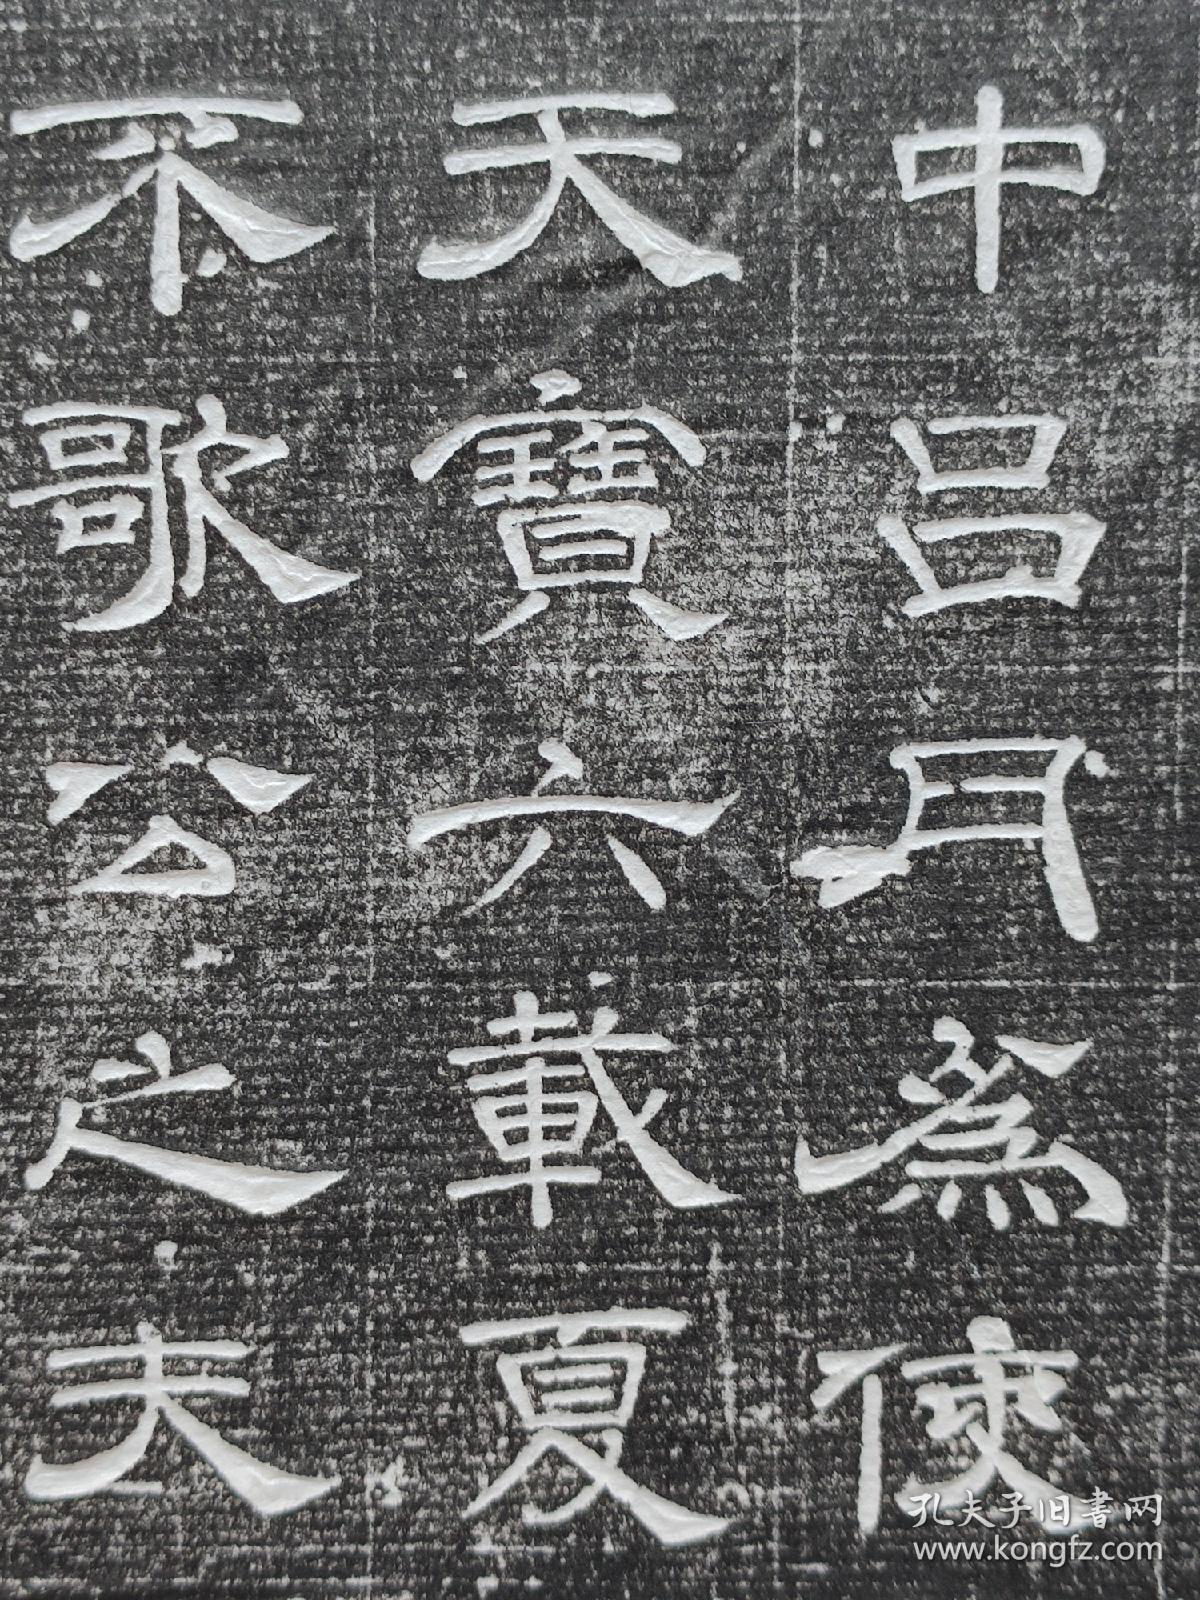 中呂月為使
天寶六載夏
不歌公之夫
孔夫子旧書网
www.kongfz.com